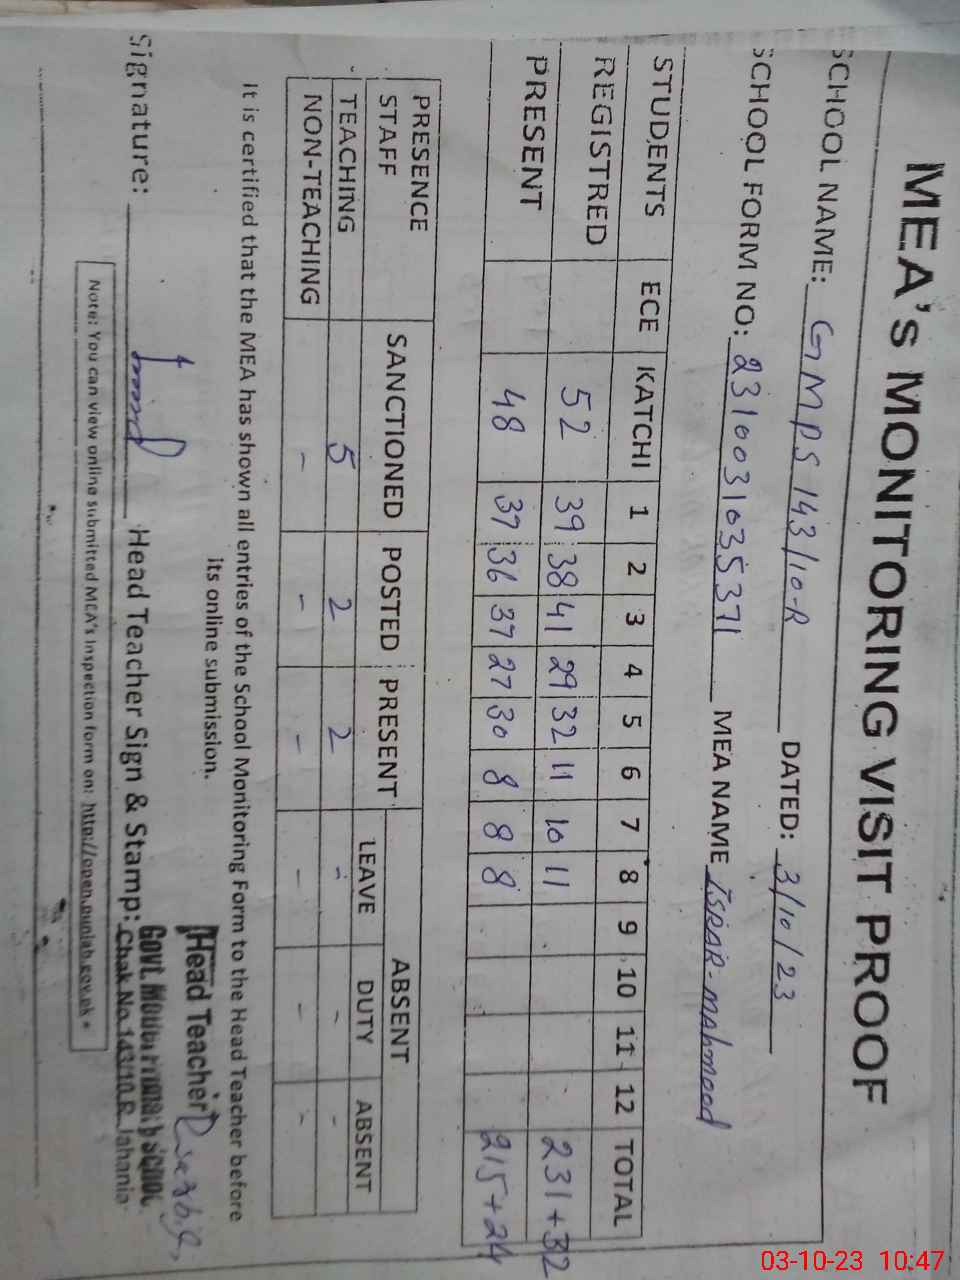 MEA's MONITORING VISIT PROOF
SCHOOL NAME: GMPS 143/10-R DATED: 3/10/23
SCHOOL FORM NO: 2310031035371 MEA NAME ISRAR-MAHMOOD
STUDENTS ECE KATCHI 1 2 3 4 5 6 7 8 9 10 11 12 TOTAL
REGISTRED 52 39 38 41 29 32 11 10 11 231+32
PRESENT 48 37 36 37 27 30 8 8 8 215+24
PRESENCE STAFF SANCTIONED POSTED PRESENT ABSENT
LEAVE DUTY ABSENT
TEACHING 5 2 2 - - -
NON-TEACHING - - - - - -
It is certified that the MEA has shown all entries of the School Monitoring Form to the Head Teacher before
its online submission.
Head Teacher
Signature: Head Teacher Sign & Stamp: Govt. School
Chak No.143/10.R Jahania
Note: You can view online submitted MCA's Inspection form on: http://open.punjab.gov.pk
03-10-23 10:47